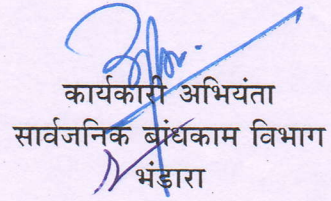 कार्यकारी अभियंता
सार्वजनिक बांधकाम विभाग
भंडारा